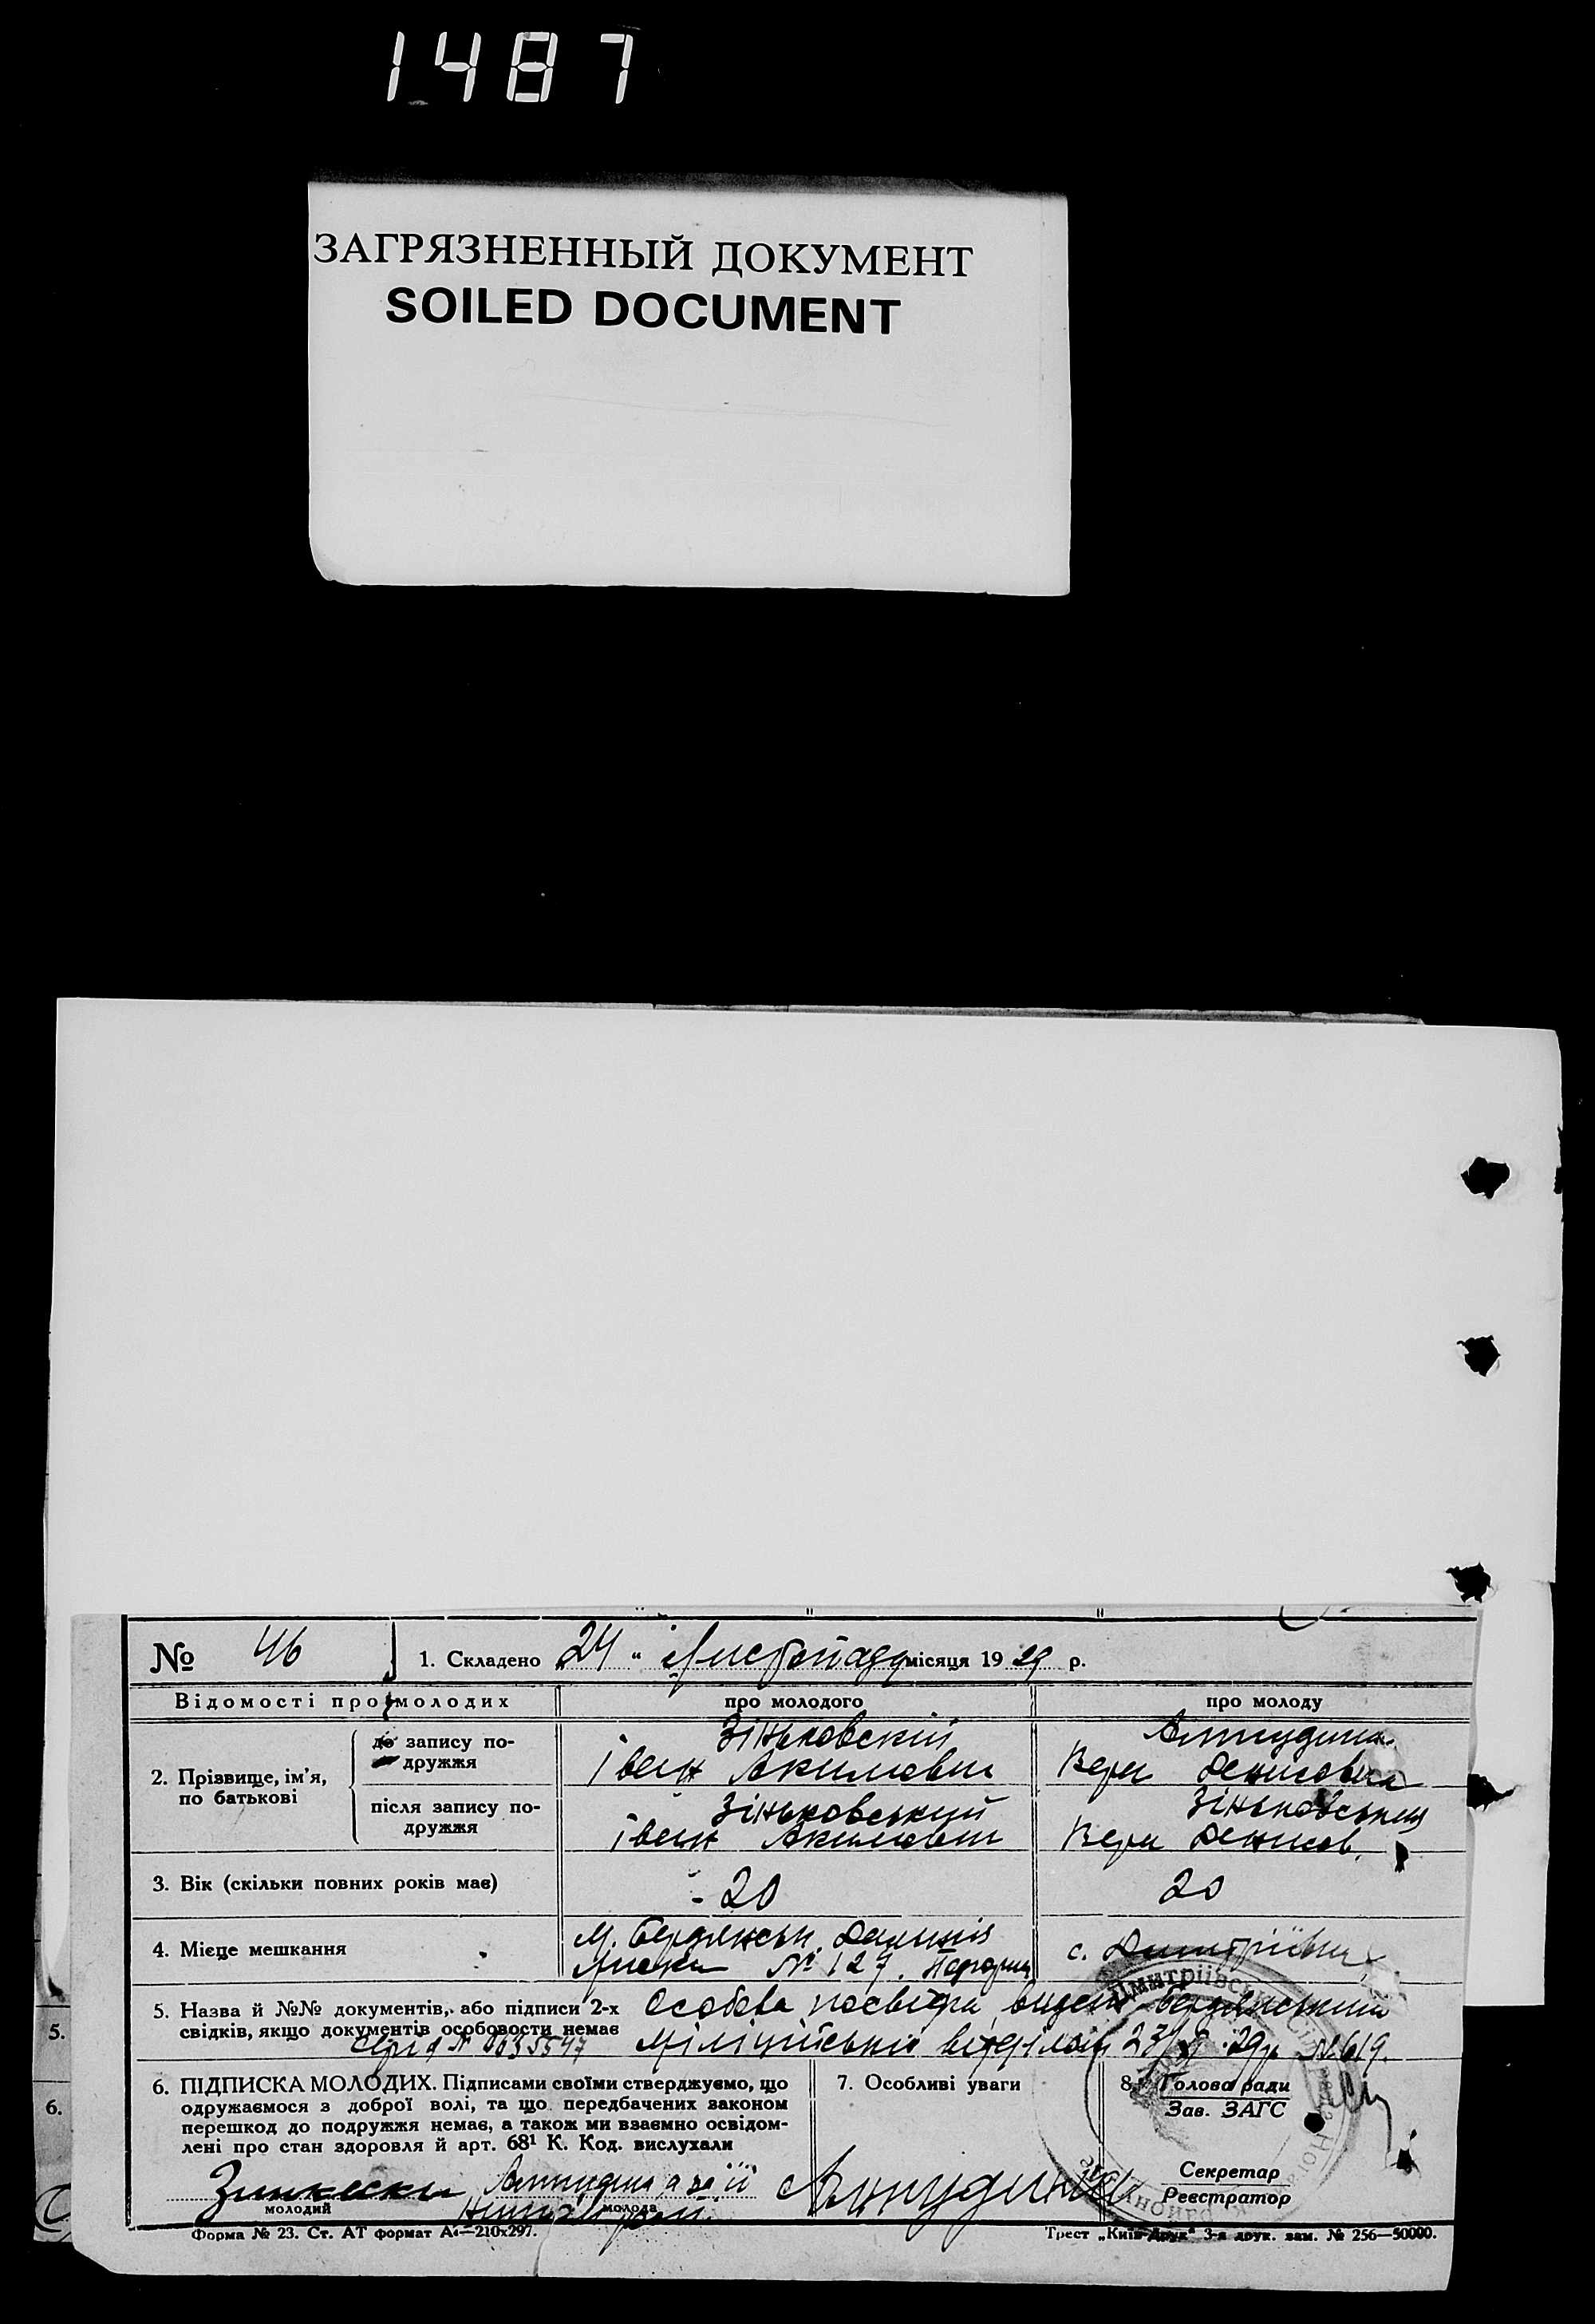 1487
ЗАГРЯЗНЕННЫЙ ДОКУМЕНТ
SOILED DOCUMENT
№ 46 1. Складено 24 " Листопаду місяця 1929 р.
Відомості про молодих про молодого про молоду
2. Прізвище, ім'я, по батькові
до запису по-
дружжя
Зіньковский
Іван Акимович
Вера Денисовна
після запису по-
дружжя
Зіньковський
Іван Акимович
Зіньковська
Вера Денисов.
3. Вік (скільки повних років має) 20 20
4. Місце мешкання
м. Бердянськ
№ 127.
с. Дмитрівка
5. Назва й №№ документів, або підписи 2-х
свідків, якщо документів особовости немає
Серія № 0035547
Особова посвідка, видана Бердянським
Міліцейським відділом 29 р. № 619.
6. ПІДПИСКА МОЛОДИХ. Підписами своїми стверджуємо, що
одружаємося з доброї волі, та що передбачених законом
перешкод до подружжя немає, а також ми взаємно освідом-
лені про стан здоровля й арт. 68¹ К. Код. вислухали
молодий
молода
7. Особливі уваги
8. Голова ради
Зав. ЗАГС
Секретар
Реєстратор
Форма № 23. Ст. АТ формат А4—210x297.
Трест „Київ-Друк" 3-я друк. зам. № 256—50000.
5.
6.